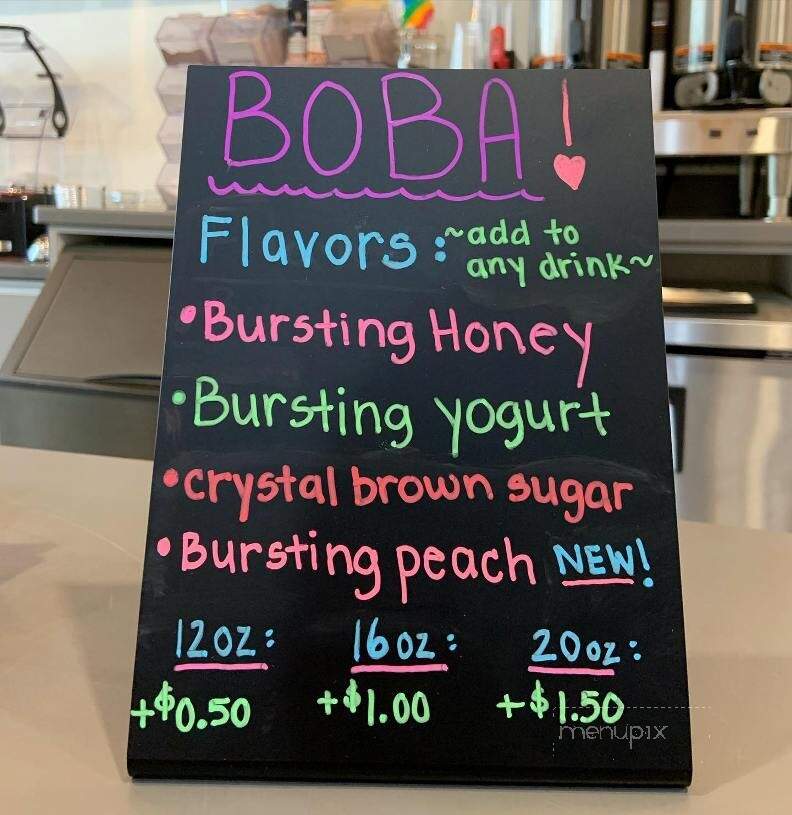 BOBA!
Flavors: ~add to
any drink~
•Bursting Honey
•Bursting yogurt
•crystal brown sugar
•Bursting peach NEW!
12oz: 16oz: 20oz:
+$0.50 +$1.00 +$1.50
menupix